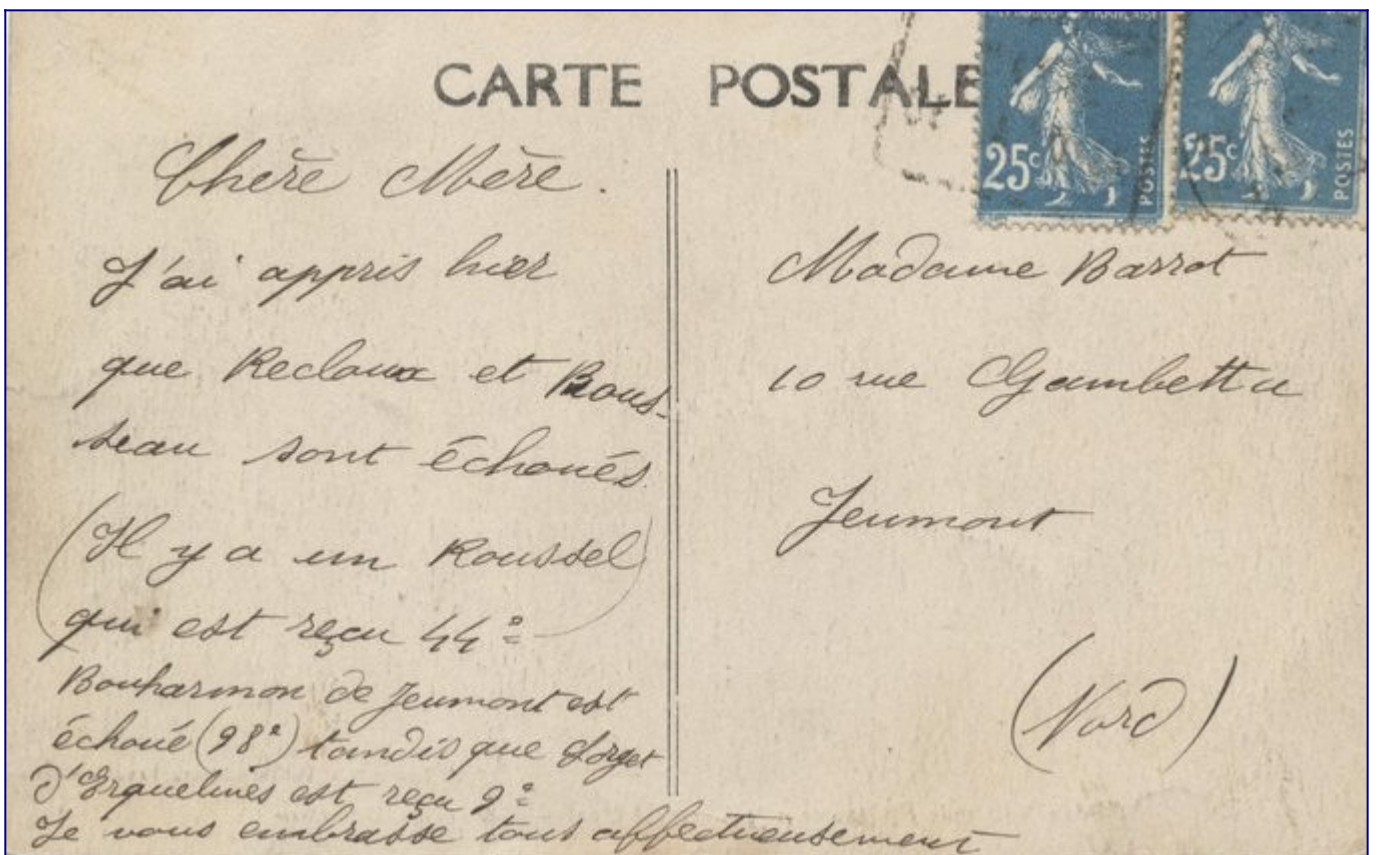 CARTE POSTALE
25c POSTES
25c POSTES
Chère Mère.
J'ai appris hier
que Recloux et Rous-
seau sont échoués.
(Il y a un Roussel
qui est reçu 44e
Bouharmon de Jeumont est
échoué (98e) tandis que Forget
d'Erquelines est reçu 9e
Je vous embrasse tous affectueusement
Madame Barrot
10 rue Gambetta
Jeumont
(Nord)